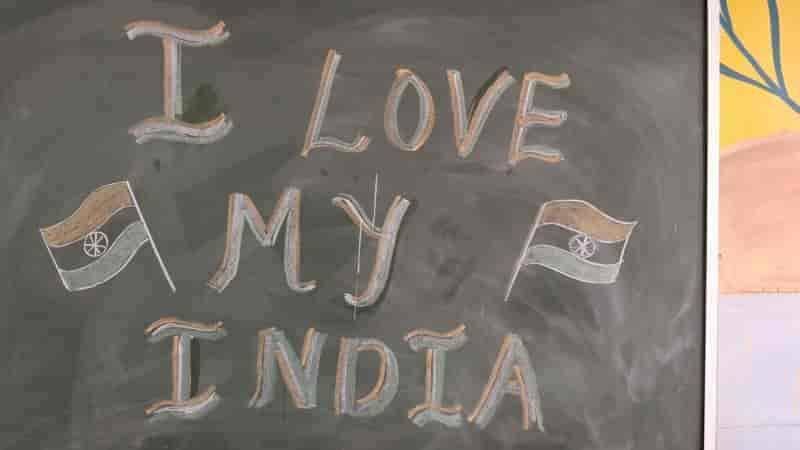 I LOVE
MY
INDIA